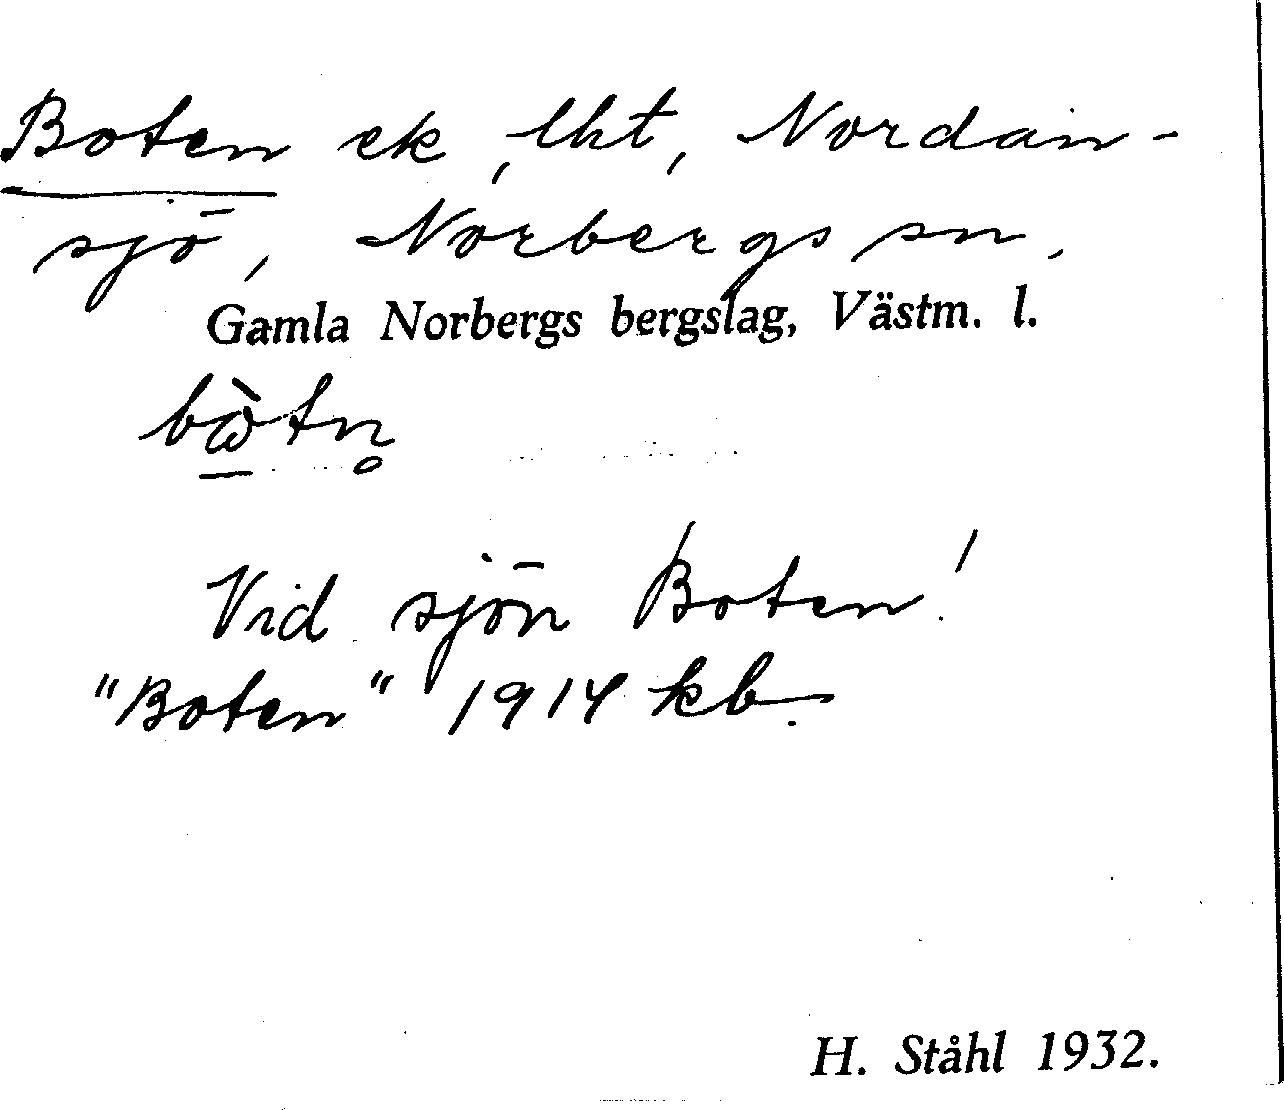 Boten ek, lht, Nordan-
sjö, Norbergs sn.
Gamla Norbergs bergslag, Västm. l.
bὼtn̥
Vid sjön Boten!
"Boten" 1914 kb.
H. Ståhl 1932.